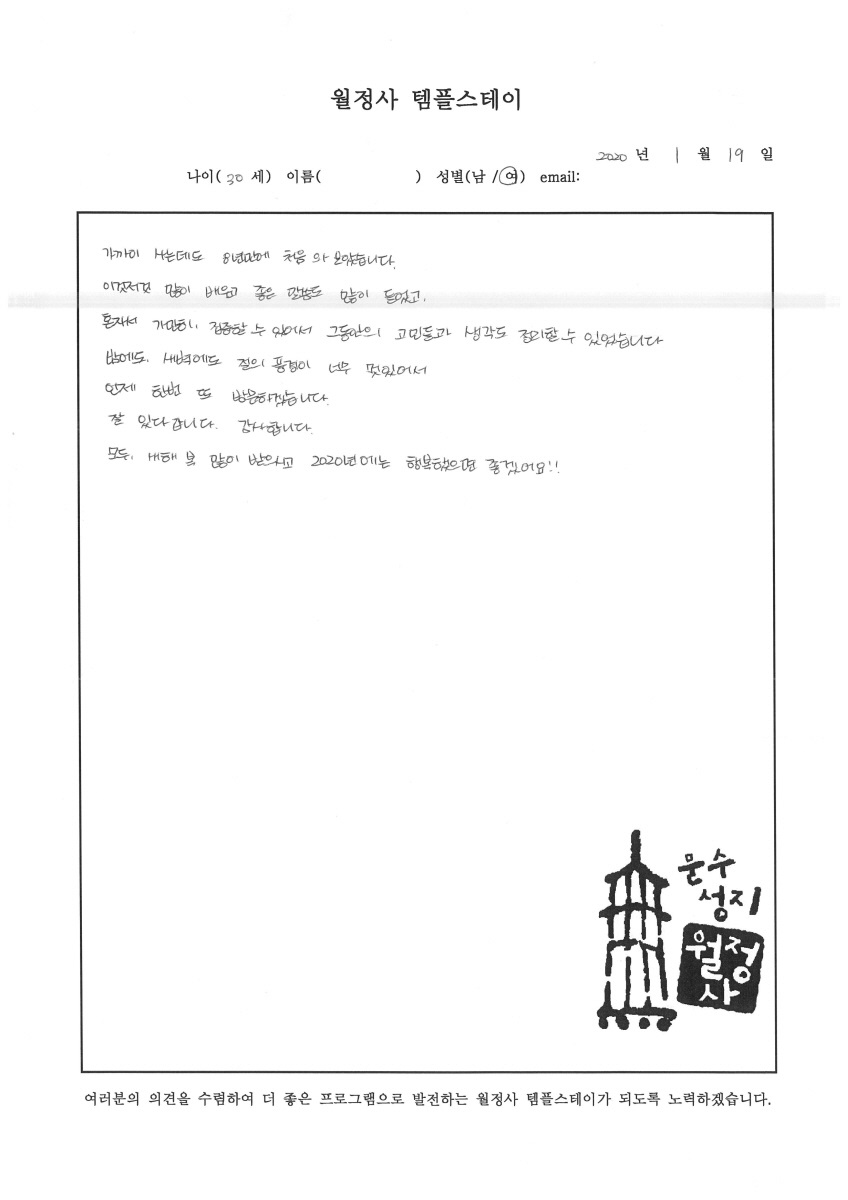 월정사 템플스테이
2020 년 1 월 19 일
나이( 30 세) 이름( ) 성별(남 /여) email:
가까이 사는데도 8년만에 처음 와 보았습니다.
이것저것 많이 배우고 좋은 말씀도 많이 듣었고,
혼자서 가만히, 집중할 수 있어서 그동안의 고민들과 생각도 정리할 수 있었습니다
밤에도, 새벽에도 절의 풍경이 너무 멋있어서
언제 한번 또 방문하겠습니다.
잘 있다 갑니다. 감사합니다.
모두, 새해 복 많이 받으시고 2020년에는 행복했으면 좋겠어요!!
문수
성지
월정
사
여러분의 의견을 수렴하여 더 좋은 프로그램으로 발전하는 월정사 템플스테이가 되도록 노력하겠습니다.